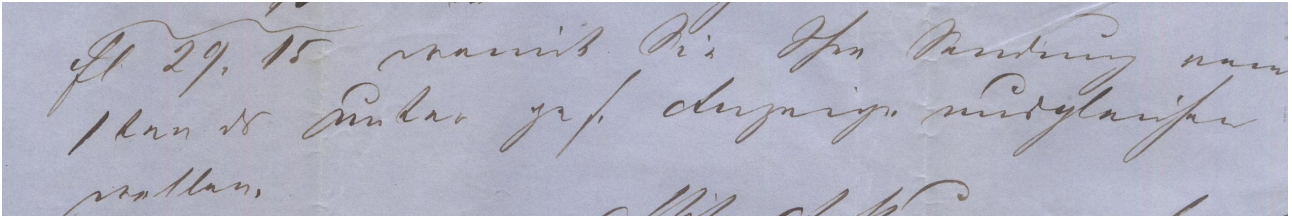 fl 29. 15 womit Sie Ihre Sendung vom
1ten ds unter gef. Anzeige ausgleichen
wollen.